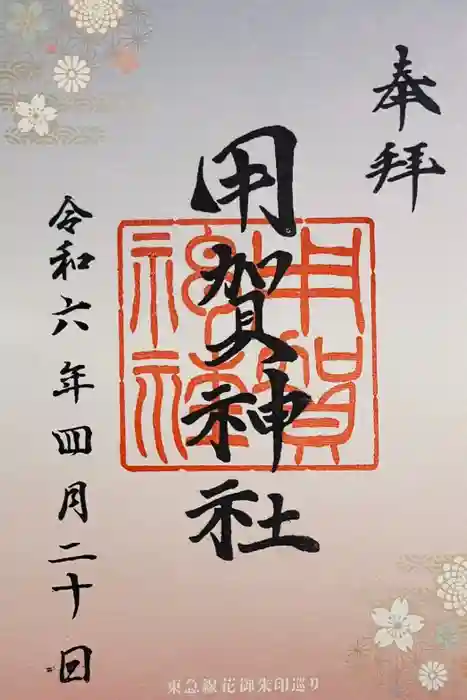 奉拝
用賀神社
令和六年四月二十日
東急線花御朱印巡り